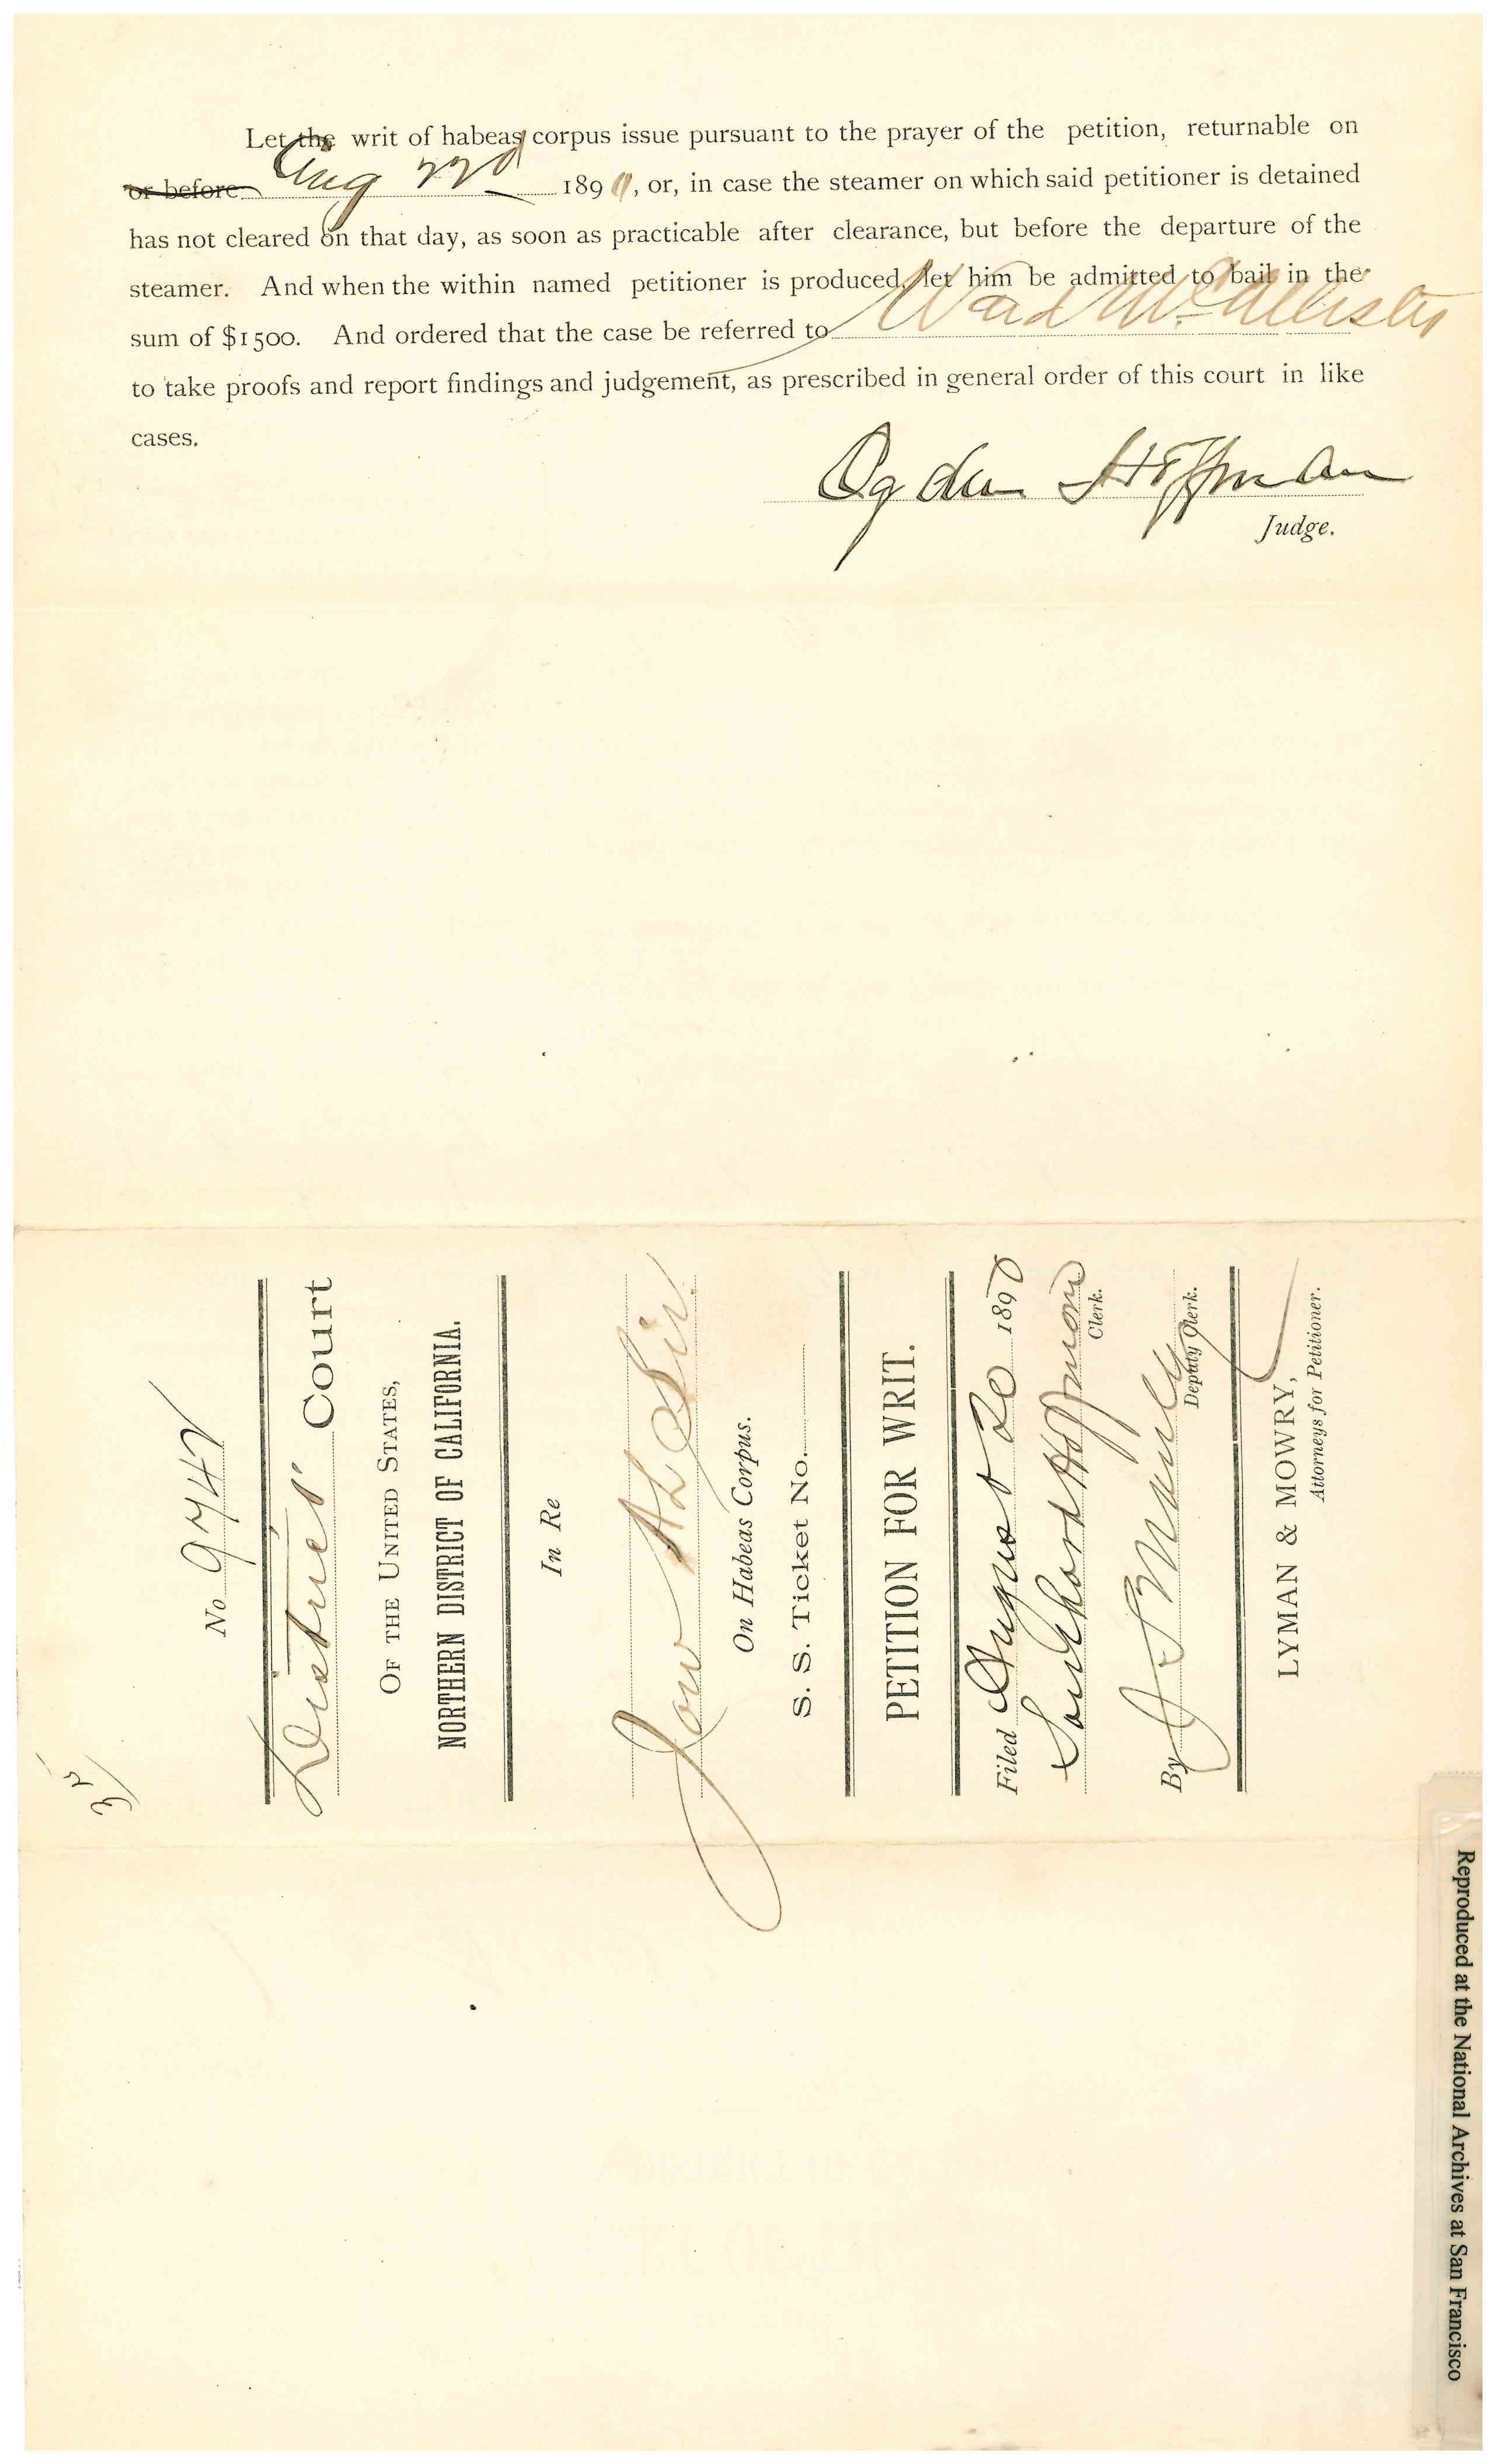 Let the writ of habeas corpus issue pursuant to the prayer of the petition, returnable on
or before Aug 22d 1890, or, in case the steamer on which said petitioner is detained
has not cleared on that day, as soon as practicable after clearance, but before the departure of the
steamer. And when the within named petitioner is produced, let him be admitted to bail in the
sum of $1500. And ordered that the case be referred to Ward McAllister
to take proofs and report findings and judgement, as prescribed in general order of this court in like
cases.
Ogden Hoffman
Judge.
No. 9742
District Court
OF THE UNITED STATES,
NORTHERN DISTRICT OF CALIFORNIA.
In Re
Jow Ah Sir.
On Habeas Corpus.
S. S. Ticket No.
PETITION FOR WRIT.
Filed August 20 1890
Southard Hoffman
Clerk.
By J. S. Manley
Deputy Clerk.
LYMAN & MOWRY,
Attorneys for Petitioner.
Reproduced at the National Archives at San Francisco